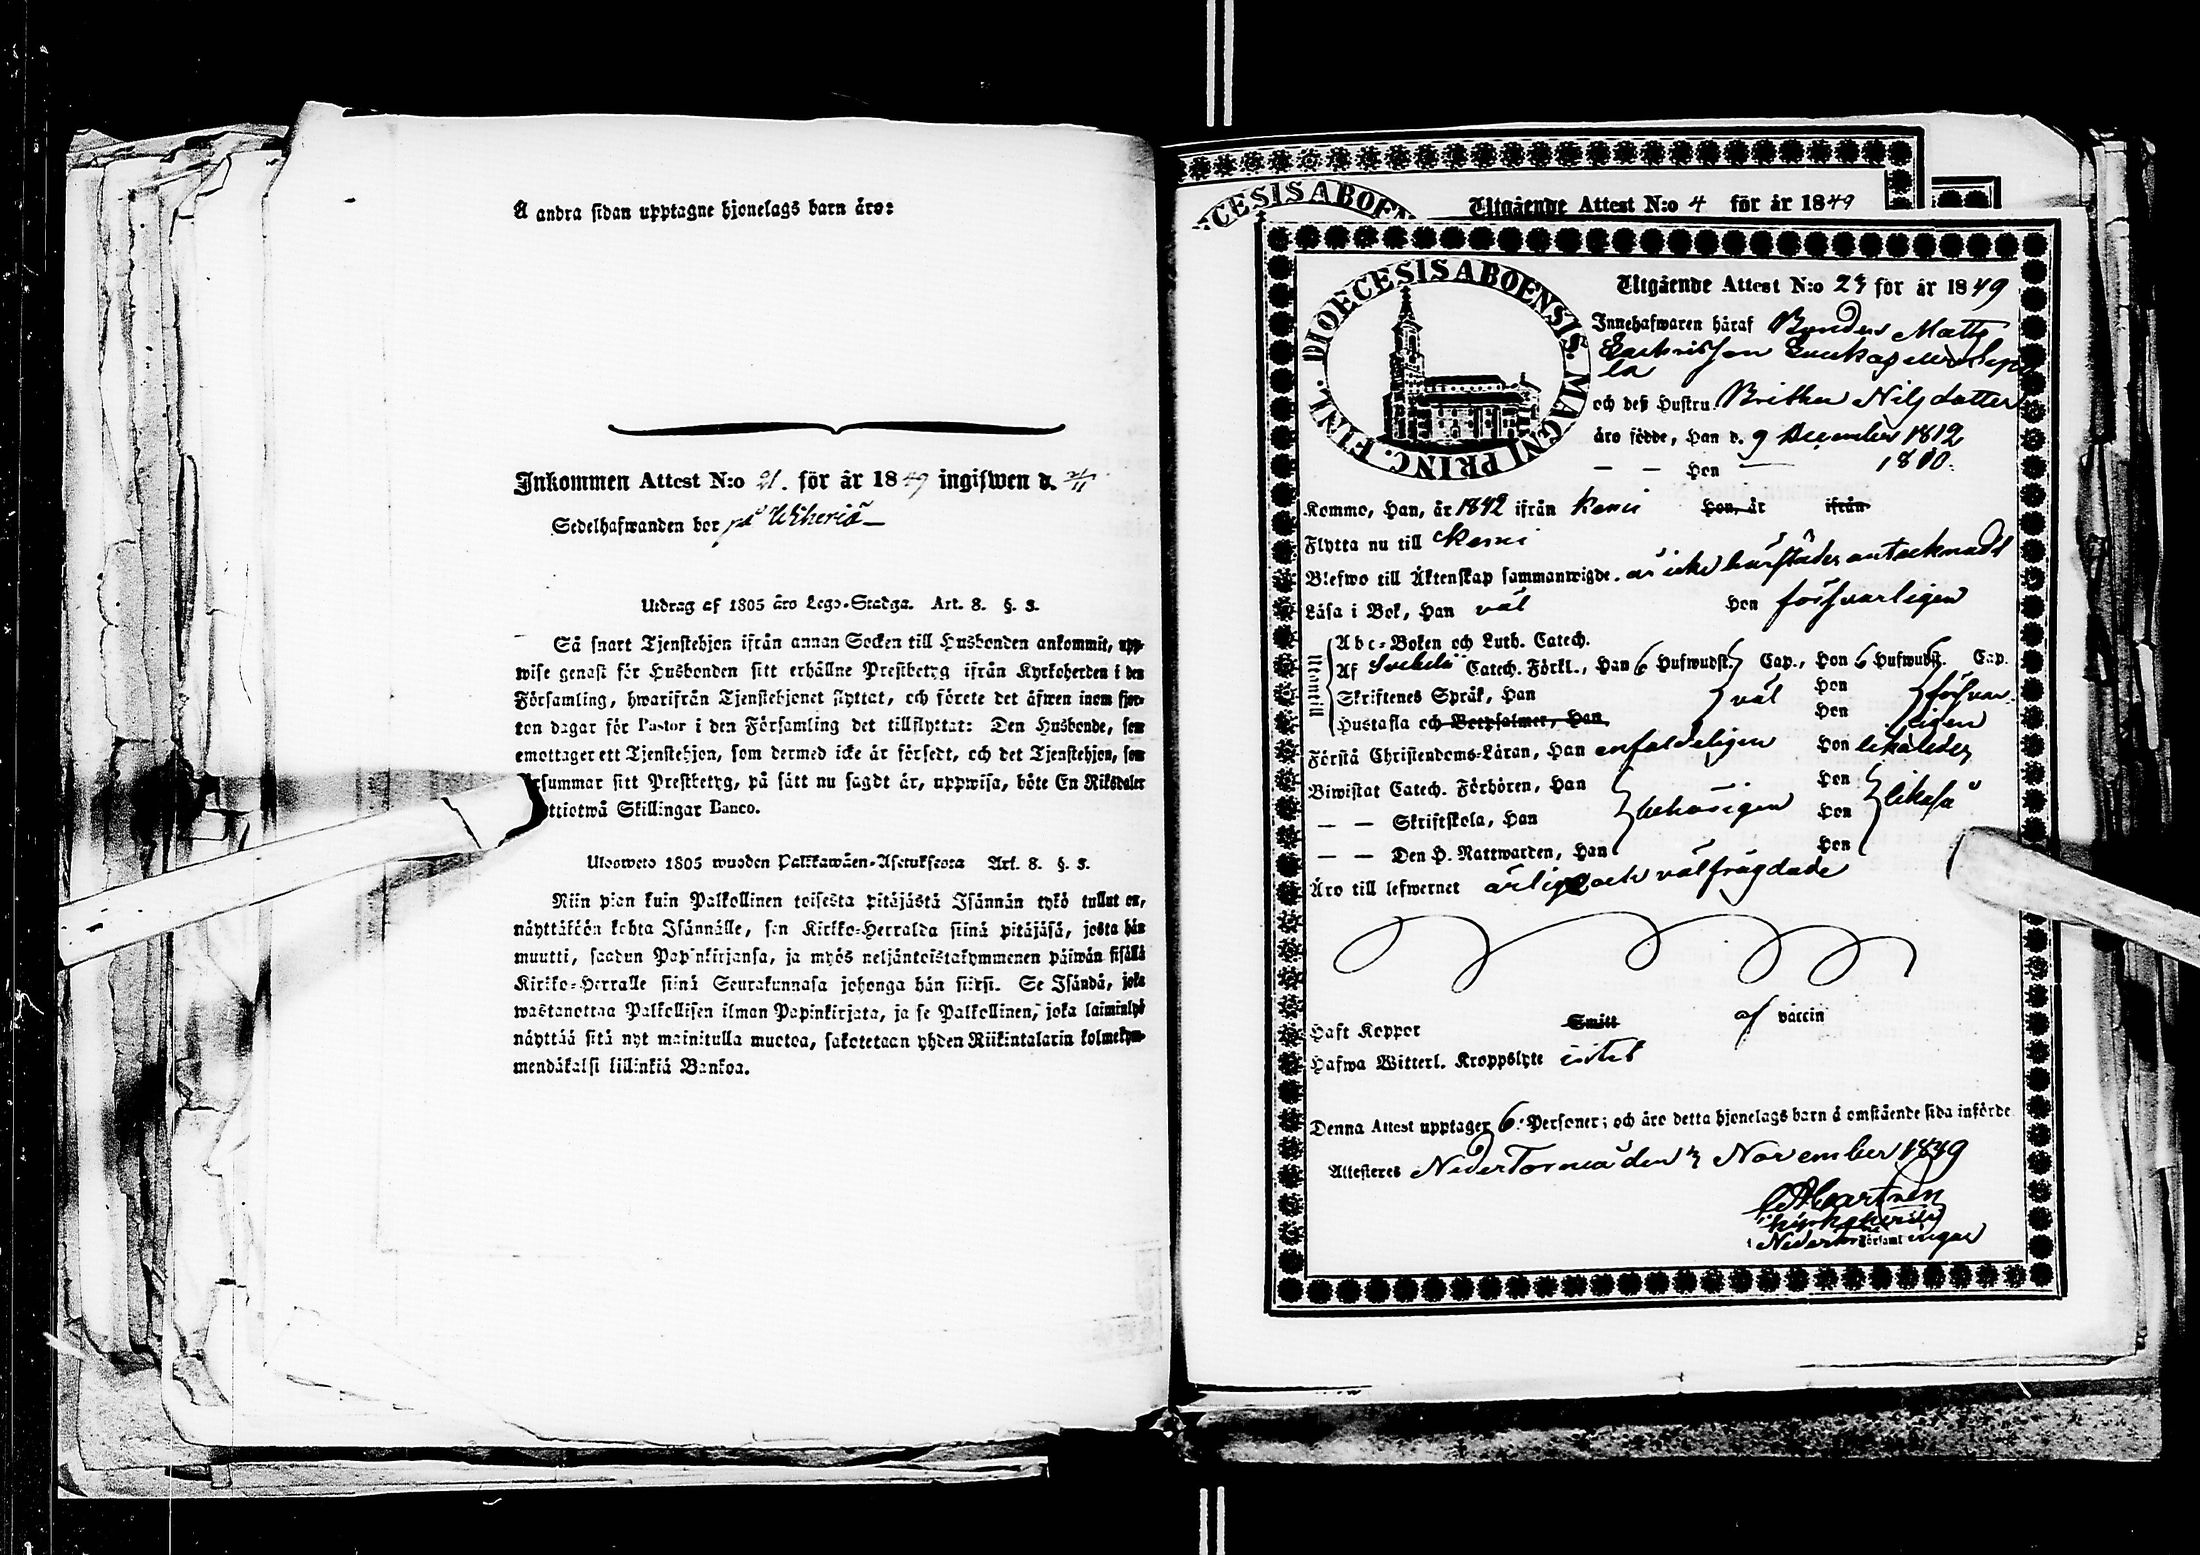 Å andra sidan upptagne hjonelags barn äro:
Inkommen Attest N:o 21. för år 1849 ingifwen d. 2/11
Sedelhafwanden bor på
Utdrag af 1805 åro Lego-Stadga. Art. 8. §. 3.
Så snart Tjenstehjon ifrån annan Socken till Husbonden ankommit, upp-
wise genast för Husbonden sitt erhållne Prestbetyg ifrån Kyrkoherden i den
Församling, hwarifrån Tjenstehjonet flyttat, och förete det äfwen inom fjor-
ton dagar för Pastor i den Församling det tillflyttat: Den Husbonde, som
emottager ett Tjenstehjon, som dermed icke är försedt, och det Tjenstehjon, som
rsummar sitt Prestbetyg, på sätt nu sagdt är, uppwisa, böte En Riksdaler
ttiotwå Skillingar Banco.
Ulosweto 1805 wuoden Palkkawäen-Asetuksesta Art. 8. §. 3.
Niin pian kuin Palkollinen toisesta pitäjästä Isännän tykö tullut on,
näyttäköön kohta Isännälle, sen Kirkko-Herralda siinä pitäjäsä, josta hän
muutti, saadun Papinkirjansa, ja myös neljäntoistakymmenen päiwän sisällä
Kirkko-Herralle siinä Seurakunnasa johonga hän siirsi. Se Isändä, joka
wastanottaa Palkollisen ilman Papinkirjata, ja se Palkollinen, joka laiminlyö
näyttää sitä nyt mainitulla muotoa, sakotetaan yhden Riikintalarin kolmekym-
mendäkaksi killinkiä Bankoa.
CESIS ABOEN
Utgående Attest N:o 4 för år 1849
DIOECESIS ABOENSIS. MAGNI PRINC. FINL.
Utgående Attest N:o 23 för år 1849
Innehafwaren häraf Bonden Matts
la
och deß Hustru Britha Nilsdotter
äro födde, Han d. 9 December 1812
— — Hon — 1810.
Kommo, Han, år 1842 ifrån Kemi Hon, år ifrån
Flytta nu till Kemi
Blefwo till Äktenskap sammanwigde. är icke härstädes antecknadt
Läsa i Bok, Han väl Hon försvarligen
Utantill
Abc-Boken och Luth. Catech.
Af Svebelii Catech. Förkl., Han 6 Hufwudst. Cap., Hon 6 Hufwudst. Cap.
Skriftenes Språk, Han väl Hon försvar
Hustafla och Botpsalmer, Han Hon ligen
Förstå Christendoms-Läran, Han enfaldeligen Hon likaledes
Biwistat Catech. Förhören, Han Hon
— — Skriftskola, Han behörigen Hon likaså
— — Den H. Nattwarden, Han Hon
Äro till lefwernet ärlige och välfrägdade
Haft Koppor Smitt af vaccin
Hafwa Witterl. Kroppslyte intet
Denna Attest upptager 6. Personer; och äro detta hjonelags barn å omstående sida införde
Attesteres NederTorneå den 3 November 1849
Kyrkoherde
i Neder Församlingar